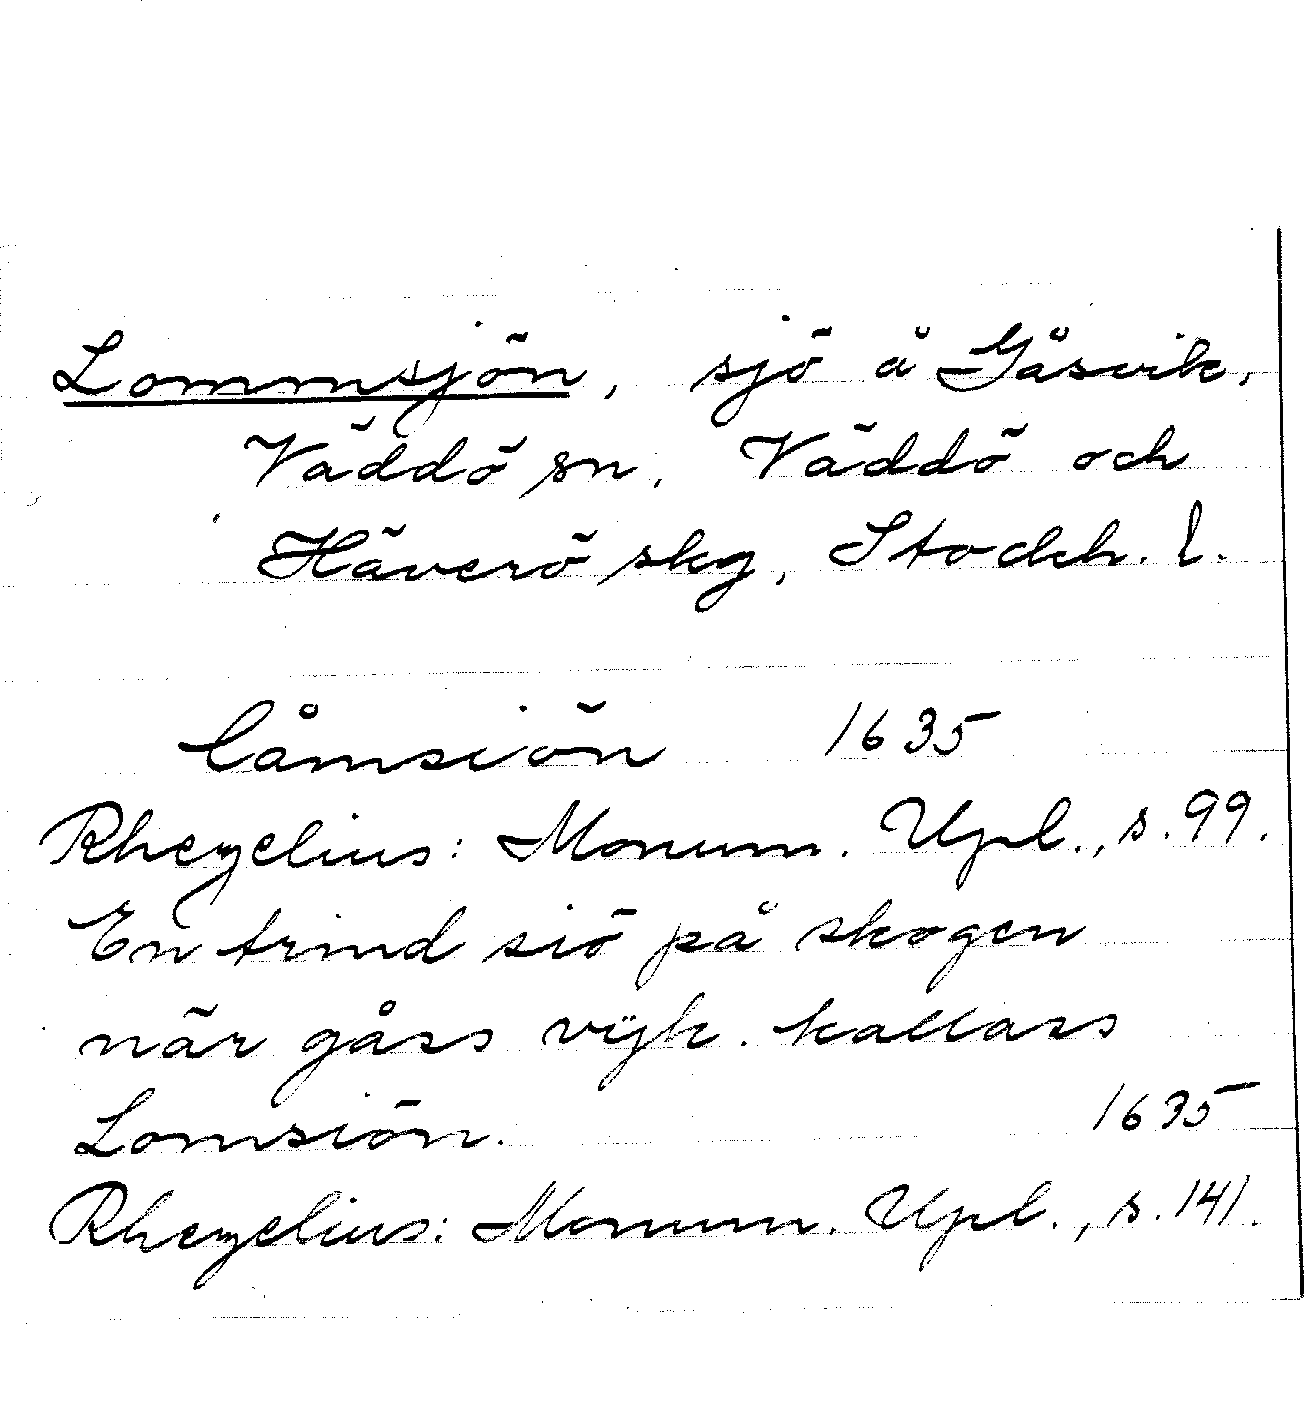 Lommsjön, sjö å Gåsvik,
Väddö sn, Väddö och
Häverö skg, Stockh. l.
Låmsiön 1635
Rhezelius: Monum. Upl., s. 99.
En trind siö på skogen
när gåss vijk. kallass
Lomsiön. 1635
Rhezelius: Monum. Upl., s. 141.